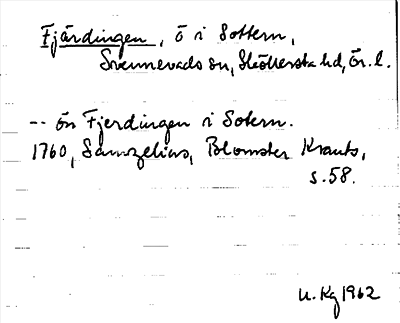 Fjärdingen, ö i Sottern,
Svennevads sn, Sköllersta hd, Ör. l.
-- ön Fjerdingen i Sotern.
1760, Samzelius, Blomster Krants,
s. 58.
U. Kg 1962